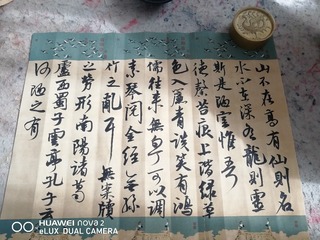 山不在高有仙則名
水不在深有龍則靈
斯是陋室惟吾
德馨苔痕上階綠草
色入簾青談笑有鴻
儒往來無白丁可以調
素琴閱金經無絲
竹之亂耳無案牘
之勞形南陽諸葛
廬西蜀子雲亭孔子云
何陋之有
HUAWEI nova 2
eLUX DUAL CAMERA